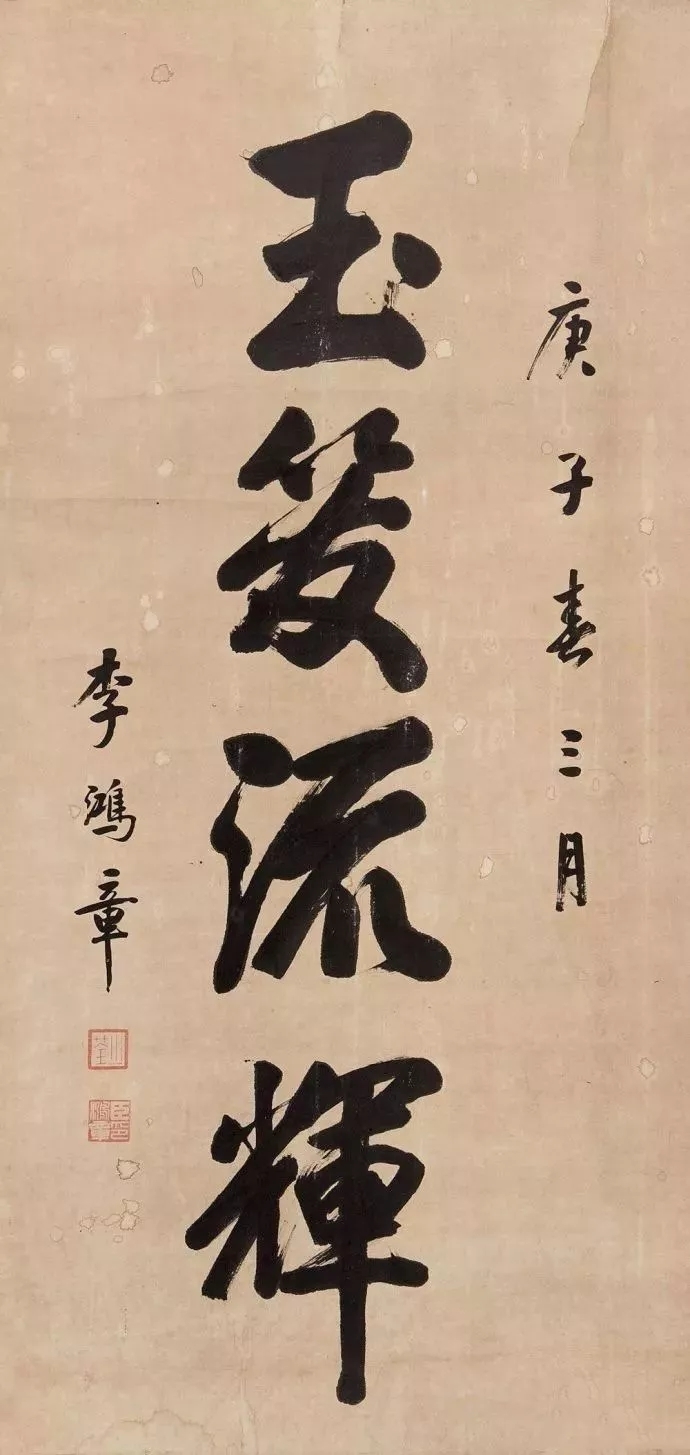 庚子春三月
玉笈流輝
李鴻章